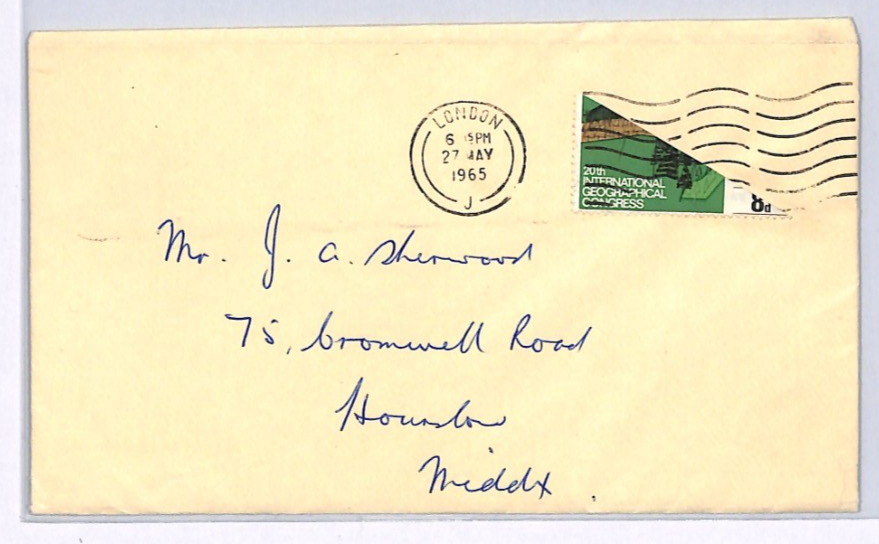 LONDON
6 15PM
27 MAY
1965
J
20th
INTERNATIONAL
GEOGRAPHICAL
CONGRESS
8d
Mr. J. A. Sherwood
75, Cromwell Road
Hounslow
Middx.